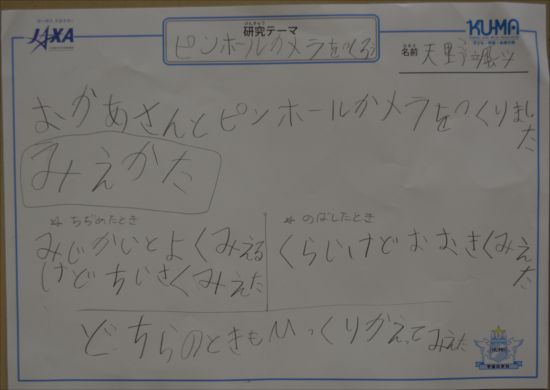 JAXA
けんきゅう
研究テーマ
ピンホールカメラをつくろう
KUMA
なまえ
名前 天野颯斗
おかあさんとピンホールカメラをつくりました
みえかた
☆ ちぢめたとき
みじかいとよくみえる
けどちいさくみえた
☆ のばしたとき
くらいけどおおきくみえた
どちらのときもひっくりかえってみえた
KUMA